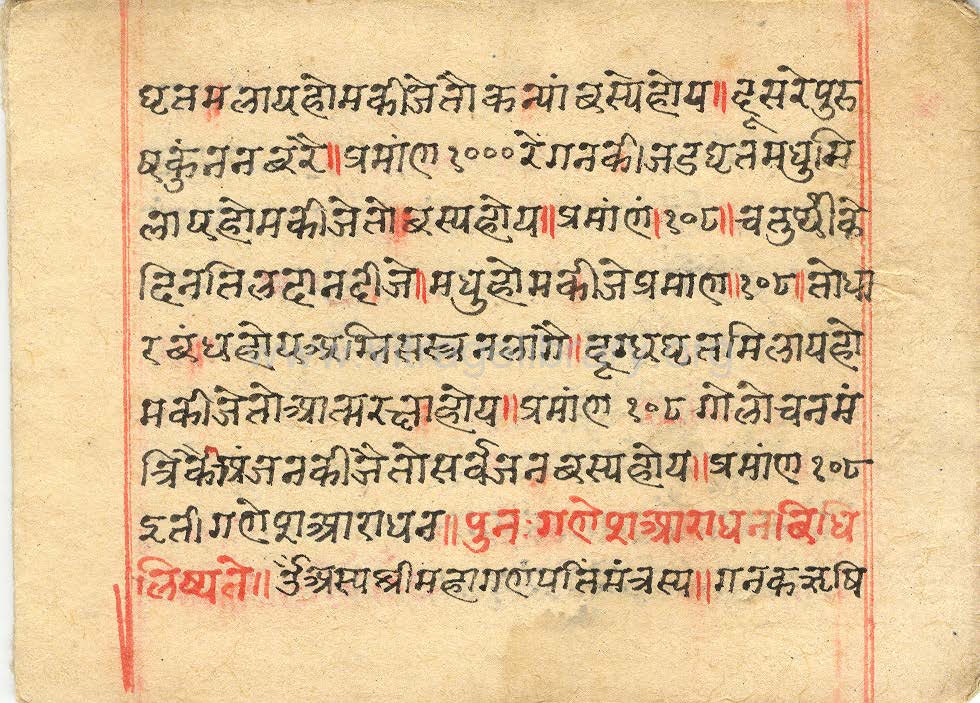 घृतमलायहोमकीजेतौकन्यांबस्येहोय॥दूसरेपुरु
षकुंननबरै॥प्रमांण१०००रेगनकीजडघृतमधुमि
लायहोमकीजेतोबस्यहोय॥प्रमांणं।१०८॥चतुर्थीके
दिनतिलदानदीजे॥मधुहोमकीजेप्रमाण॥१०८॥तोधा
रबंधहोयअग्निसस्त्रनलागै॥दूग्धघृतमिलायहो
मकीजेतोआत्मरक्षाहोय॥प्रमांण१०८गोलोचनमं
त्रिकैअंजनकीजैतोसर्वजनबस्यहोय॥प्रमांण१०८
इतीगणेशआराधन॥पुनःगणेशआराधनबिधि
लिष्यते॥ॐअस्यश्रीमहागणपतिमंत्रस्य॥गनकऋषि